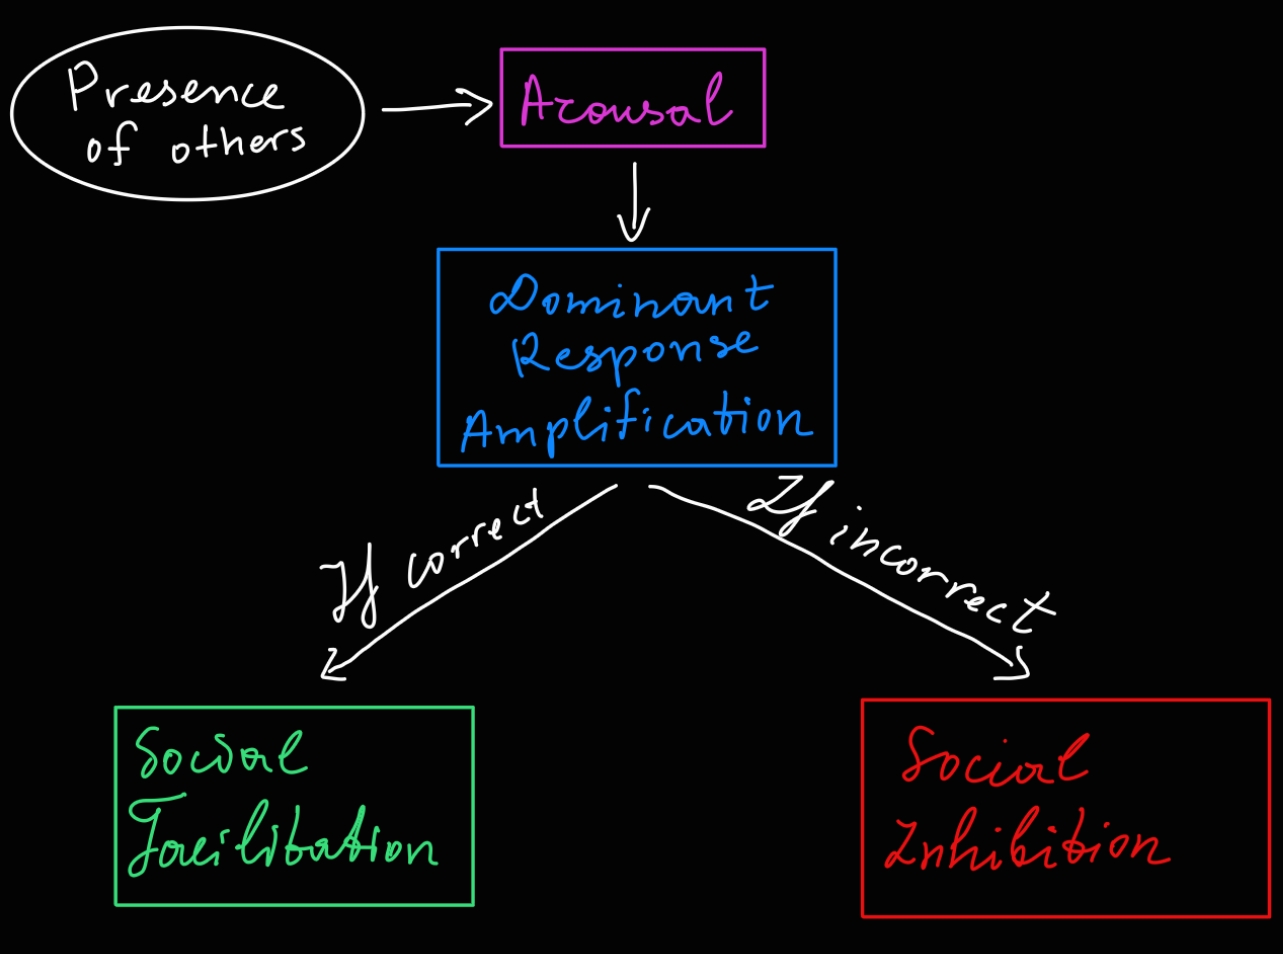 Presence
of others
Arousal
Dominant
Response
Amplification
If correct
If incorrect
Social
Facilitation
Social
Inhibition